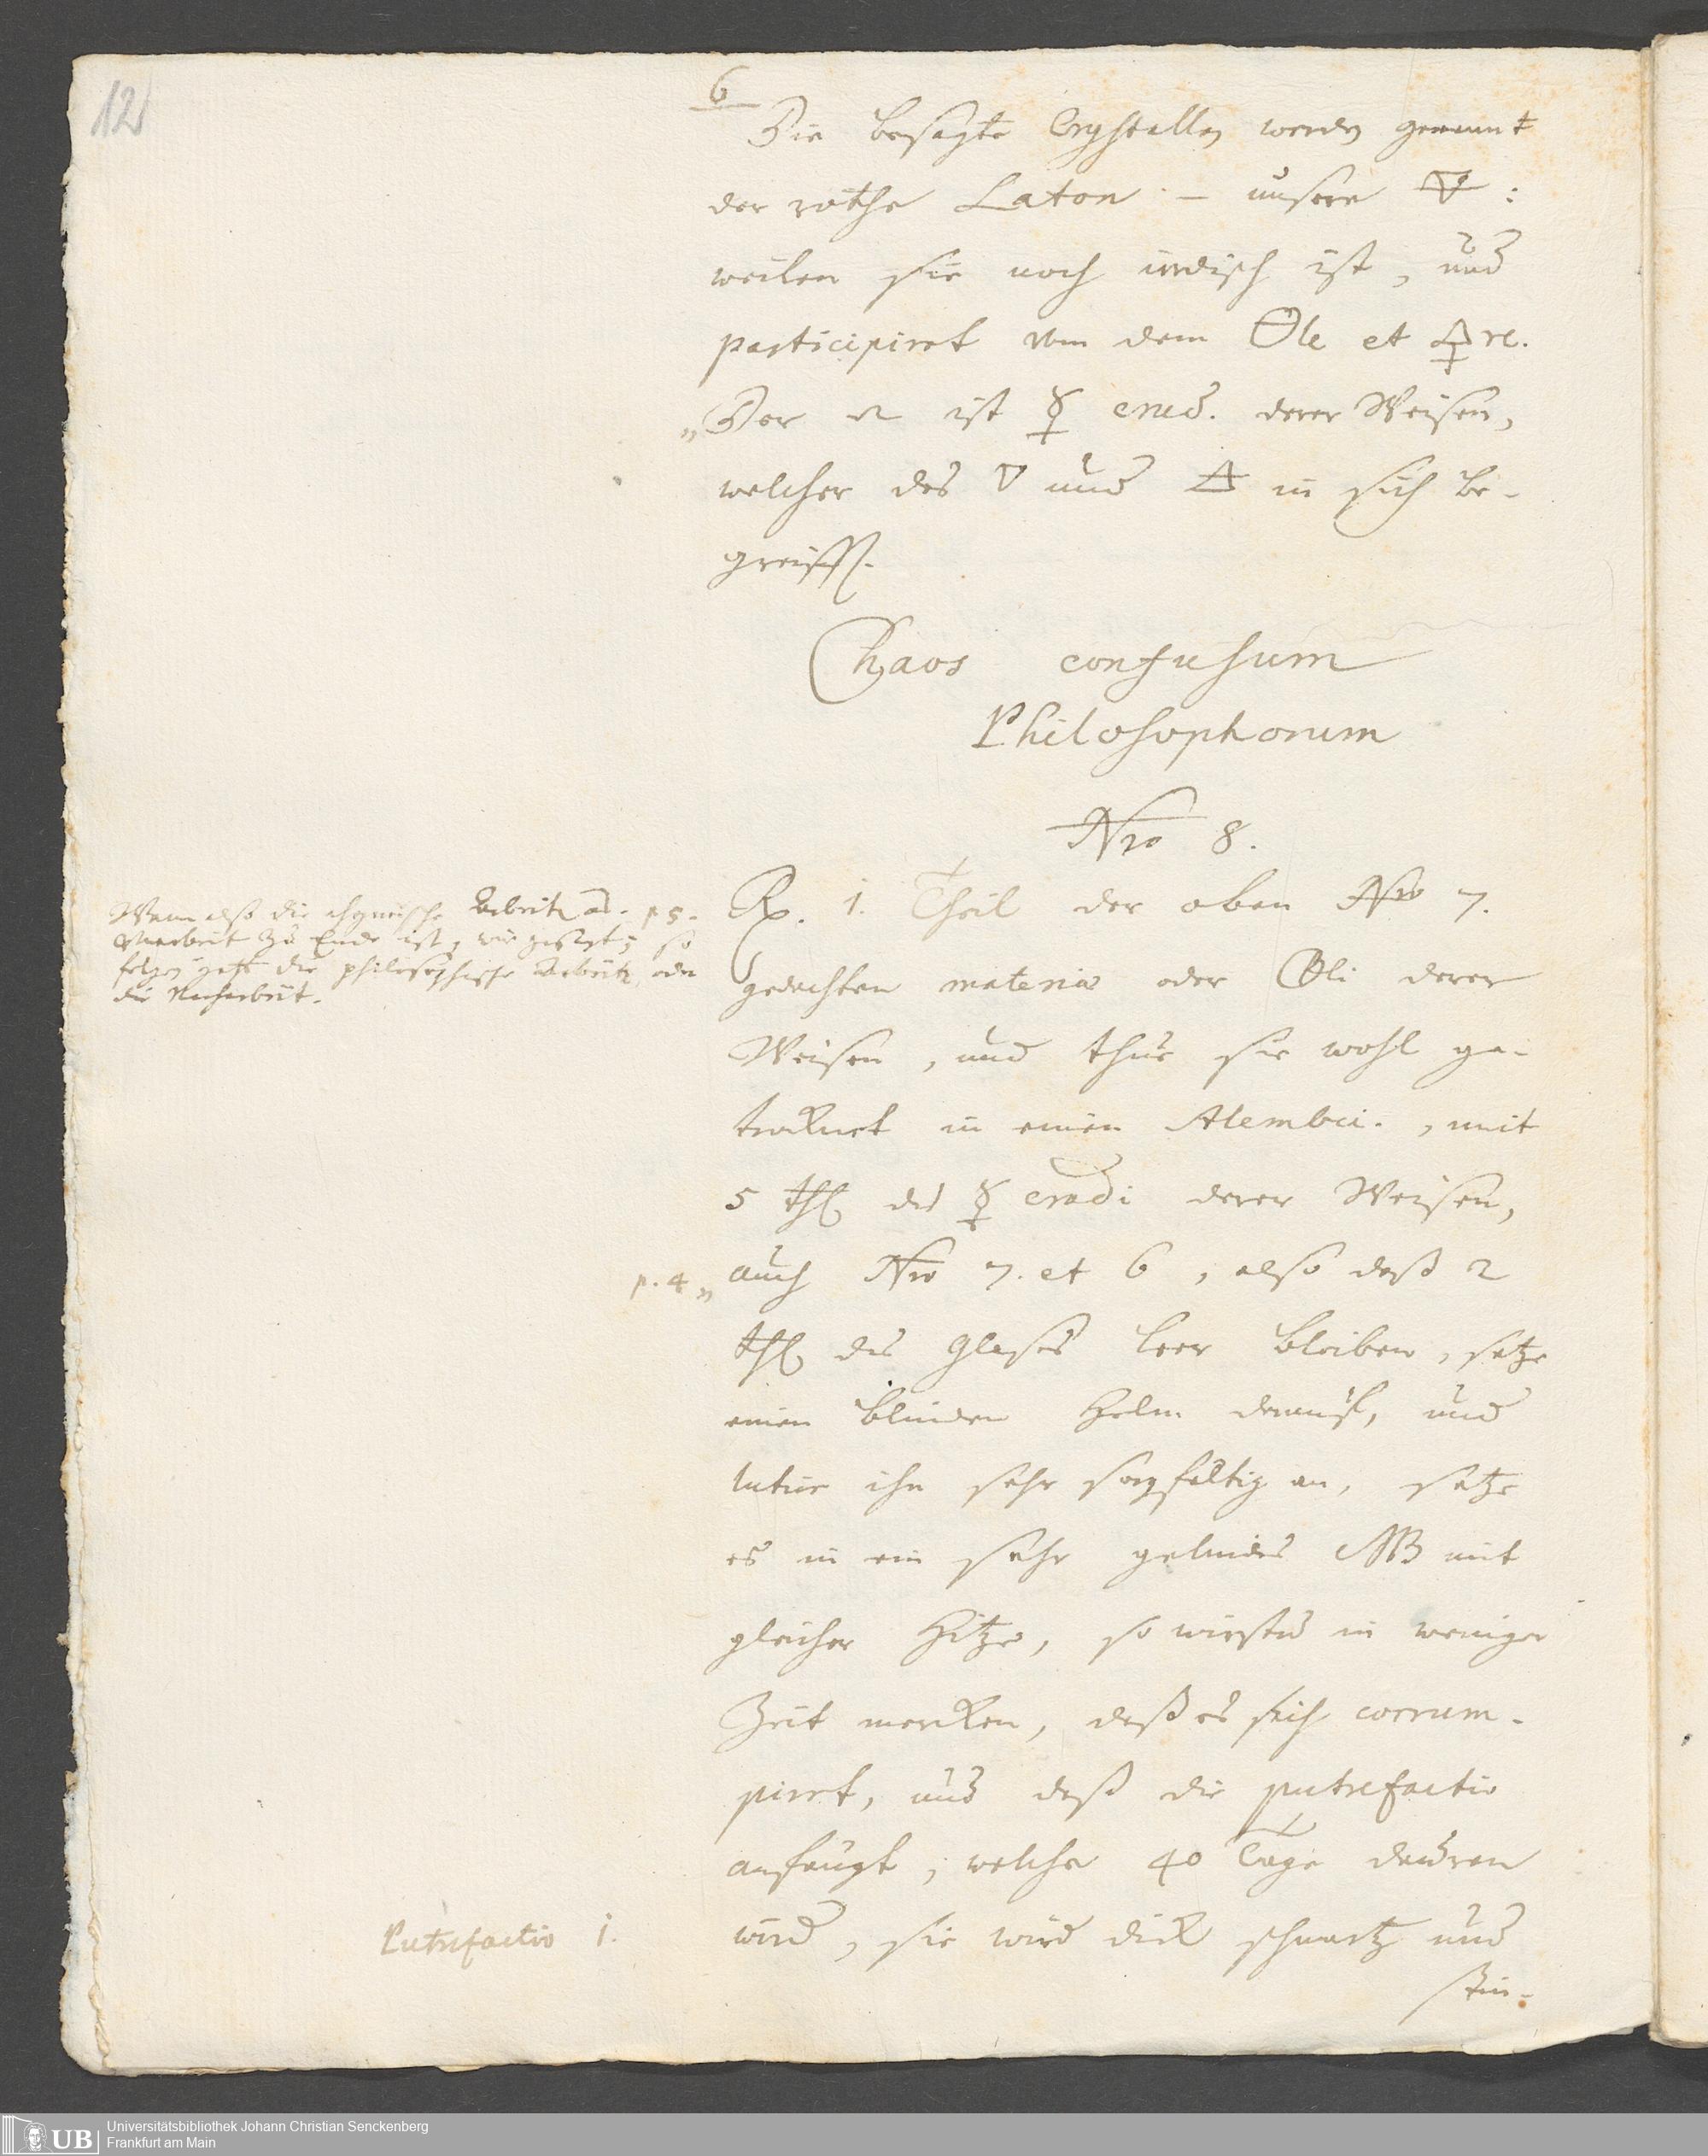 12
6
Die besagte Crystallen werden genannt
der rothe Laton – unsere 🜃 :
weilen sie noch irdisch ist, und
participiret von dem Θle et 🜍re.
„Der ist ☿ crud. derer Weisen,
welcher des 🜄 und 🜁 in sich be-
greifft.
Chaos confusum
Philosophorum
Nro 8.
Rp. 1. Theil der oben Nro 7.
gedachten materiæ oder Θli derer
Weisen, und thue sie wohl ge-
trocknet in einen Alembic., mit
5 thl des ☿ crudi derer Weisen,
p. 4 „ auch Nro 7. et 6, also daß 2
thl des Glases leer bleiben, setze
einen blinden Helm darauf, und
lutire ihn sehr sorgfältig an, setze
es in ein sehr gelindes MB mit
gleicher Hitze, so wirstu in weniger
Zeit mercken, daß es sich corrum-
piret, und daß die putrefactio
anfängt, welche 40 Tage dauren
wird, sie wird dick schwartz und
stin-
Wann also die chymische Arbeit od. p 5.
Vorarbeit zu Ende ist, wie gesagt; so
folget jetzt die philosophische Arbeit, oder
die Nacharbeit.
Putrefactio 1.
UB
Universitätsbibliothek Johann Christian Senckenberg
Frankfurt am Main